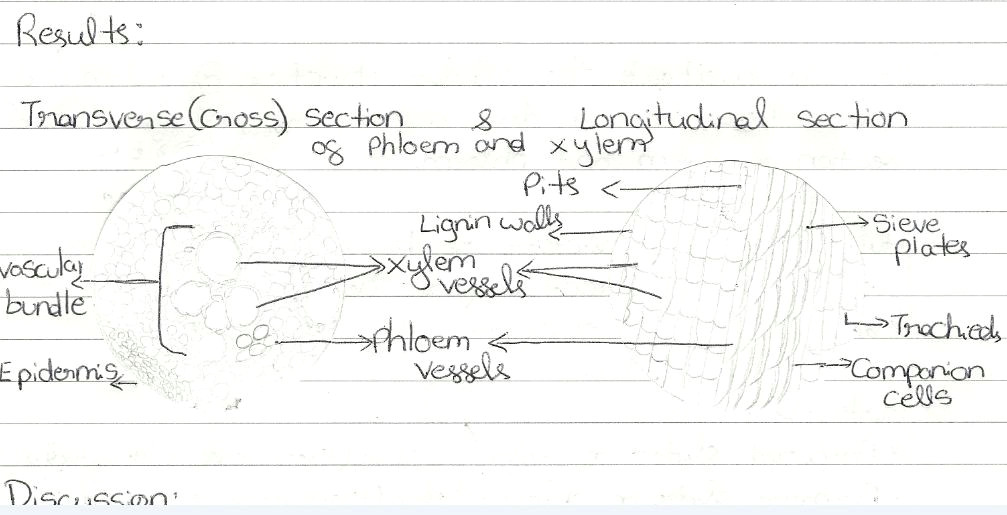 Results:
Transverse (Cross) section & Longitudinal section
of Phloem and xylem
Pits
Lignin walls
Sieve
plates
vascular
bundle
xylem
vessels
Trachieds
Phloem
vessels
Epidermis
Companion
cells
Discussion: